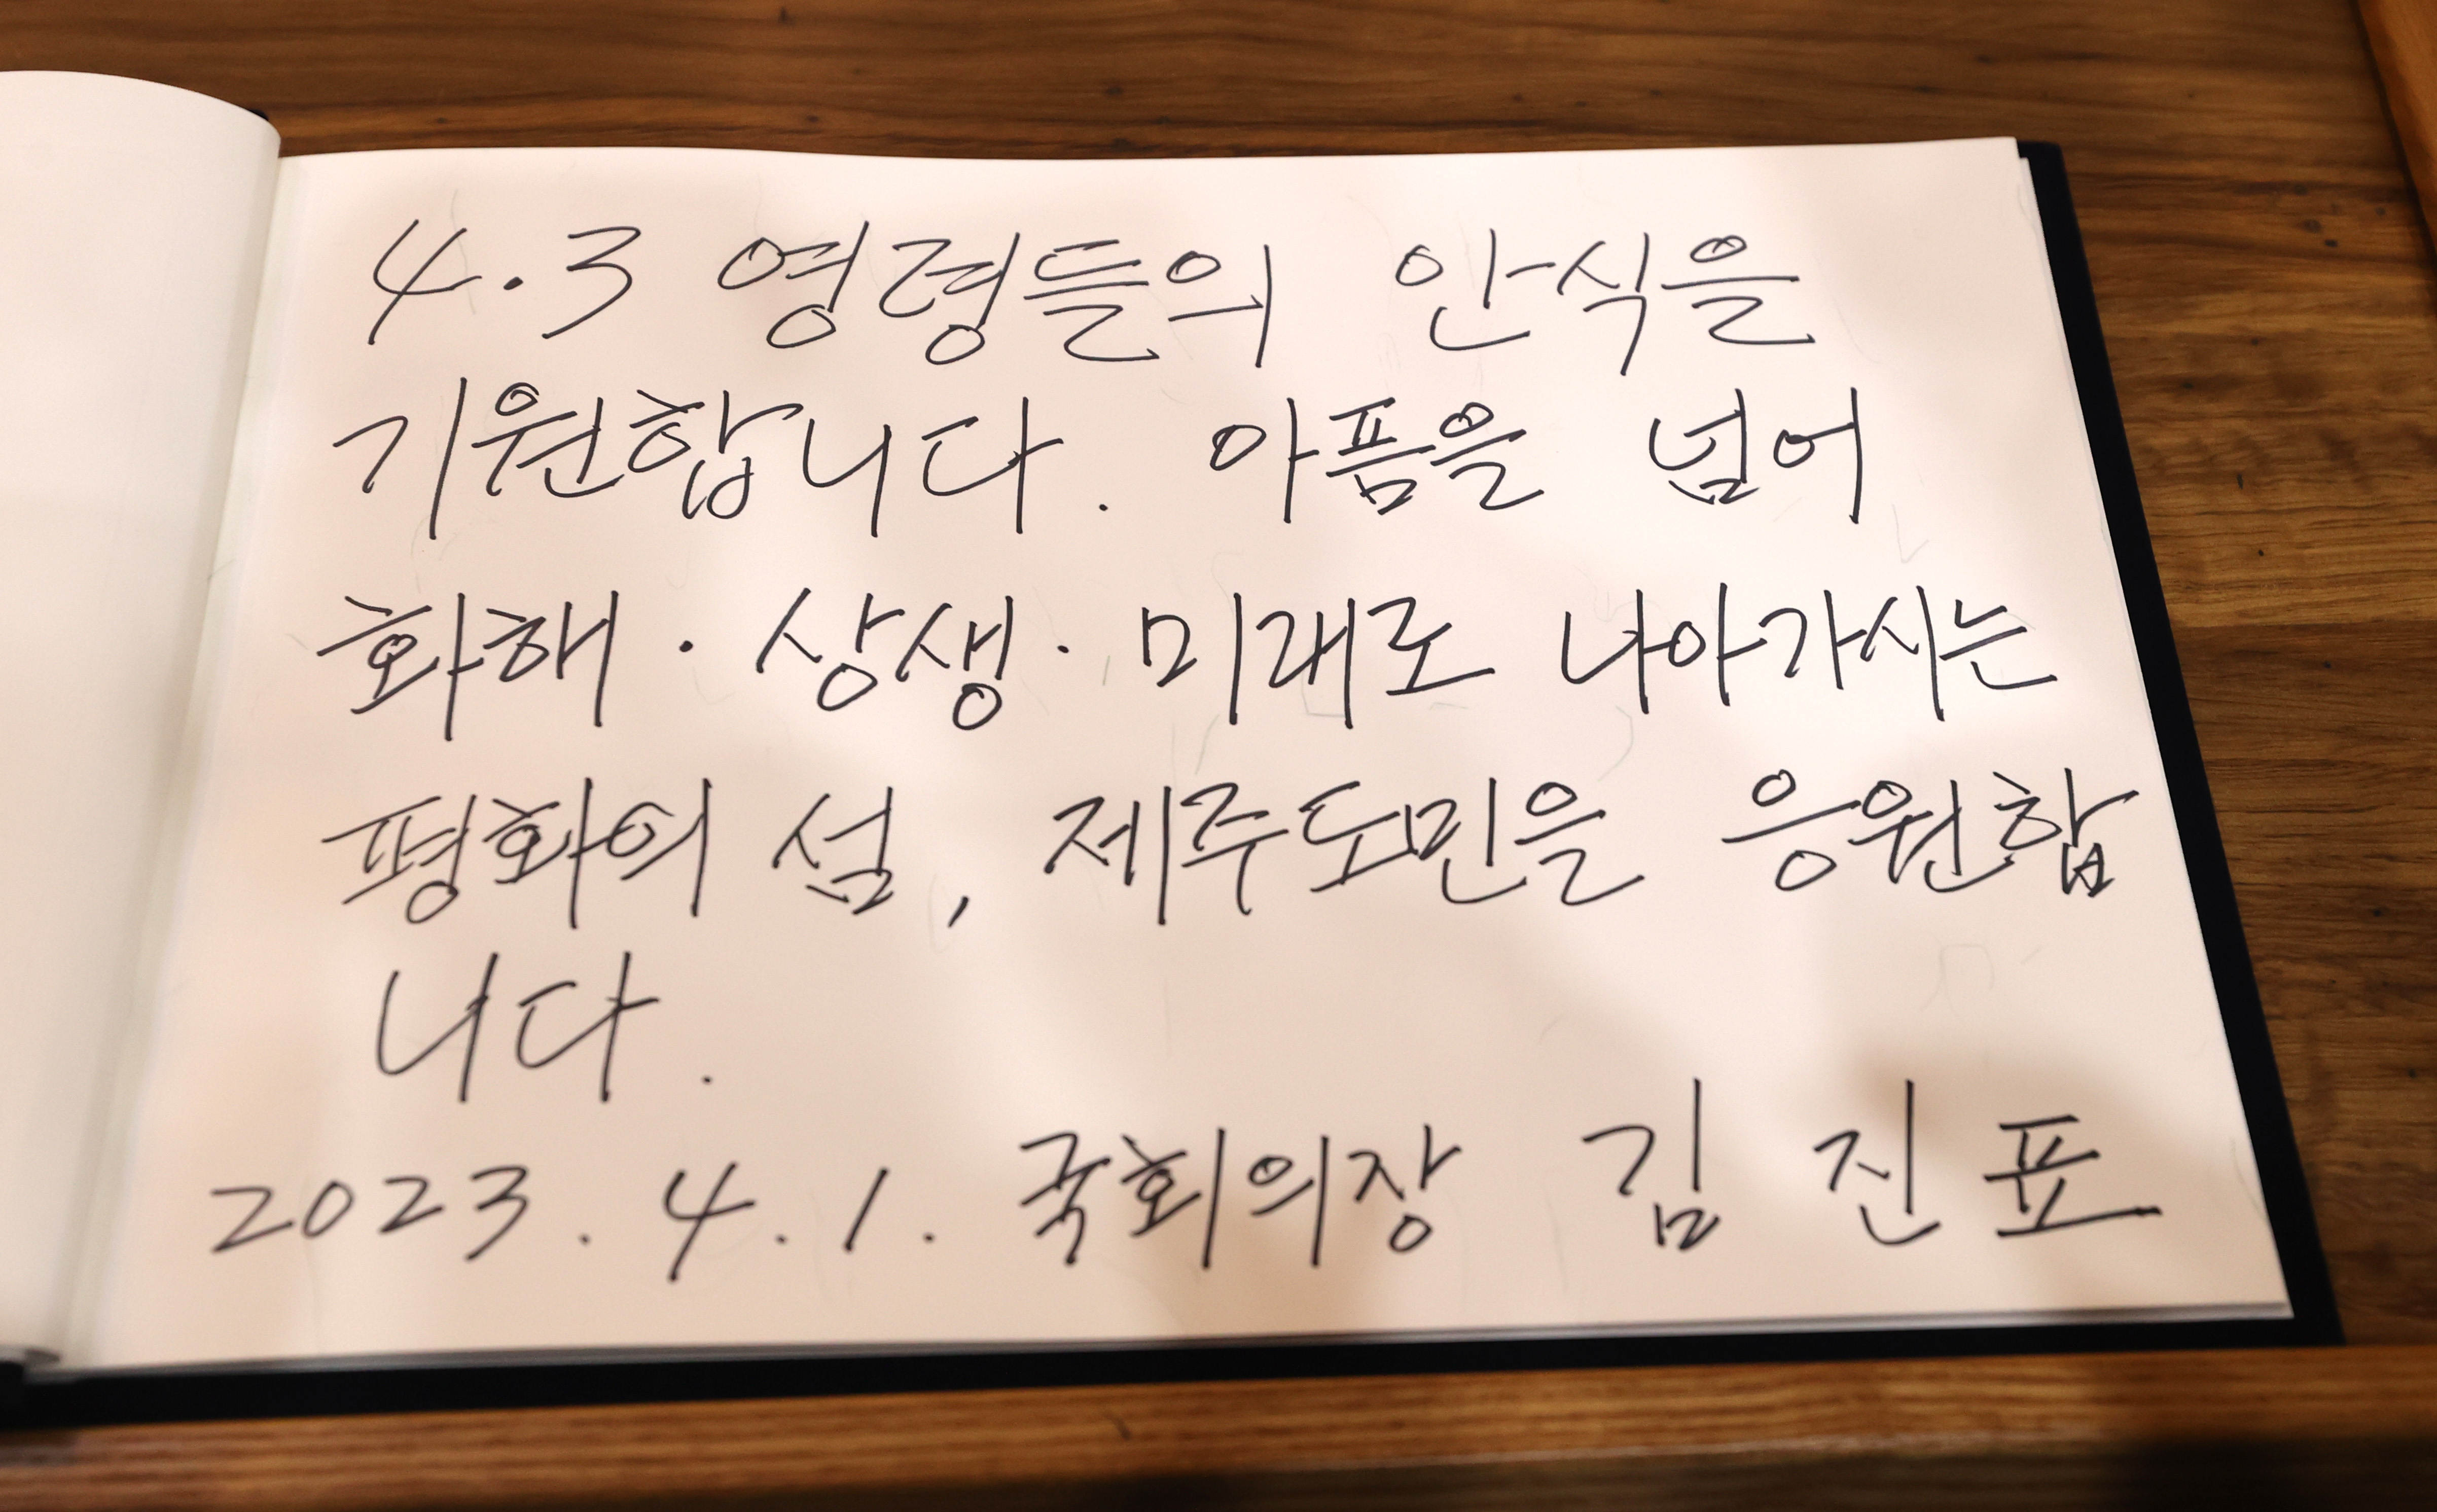 4·3 영령들의 안식을
기원합니다. 아픔을 넘어
화해·상생·미래로 나아가시는
평화의 섬, 제주도민을 응원합
니다.
2023. 4. 1. 국회의장 김진표